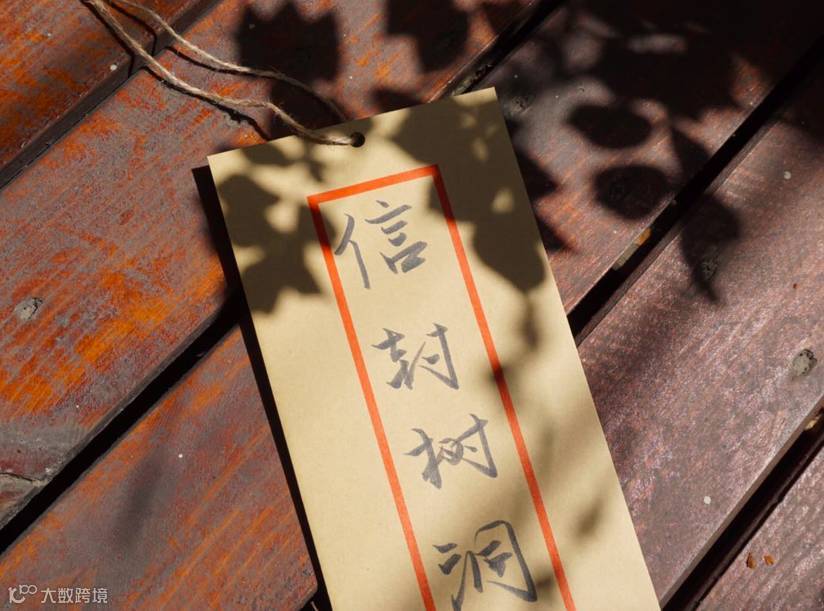 信封树洞
大数跨境